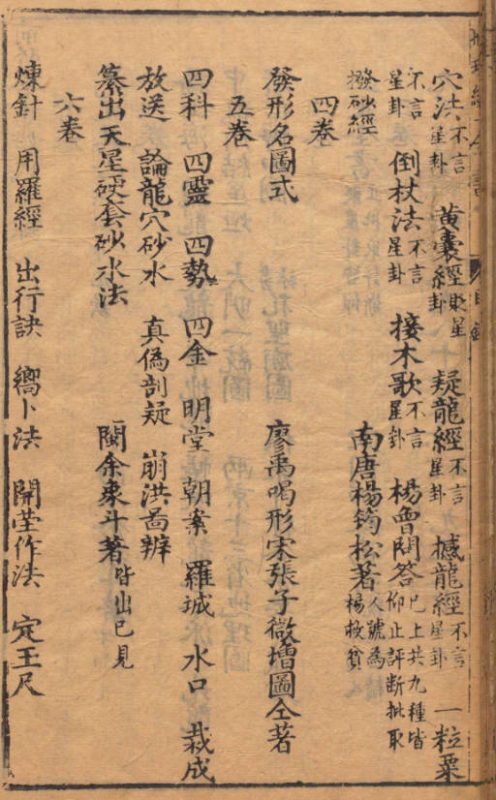 穴法不言星卦 黄囊經貶星卦 疑龍經不言星卦 撼龍經不言星卦 一粒粟
不言星卦 倒杖法不言星卦 接木歌不言星卦 楊曾問答已上共九種皆仰止評斷批取
撥砂經 南唐楊筠松著人號為楊救貧
四卷
發形名圖式 廖禹喝形宋張子微增圖仝著
五卷
四科 四靈 四勢 四金 明堂 朝案 羅城 水口 裁成
放送 論龍穴砂水 真偽剖疑 崩洪啚辨
纂出天星硬套砂水法 閩余象斗著皆出已見
六卷
煉針 用羅經 出行訣 嚮卜法 開茔作法 定王尺